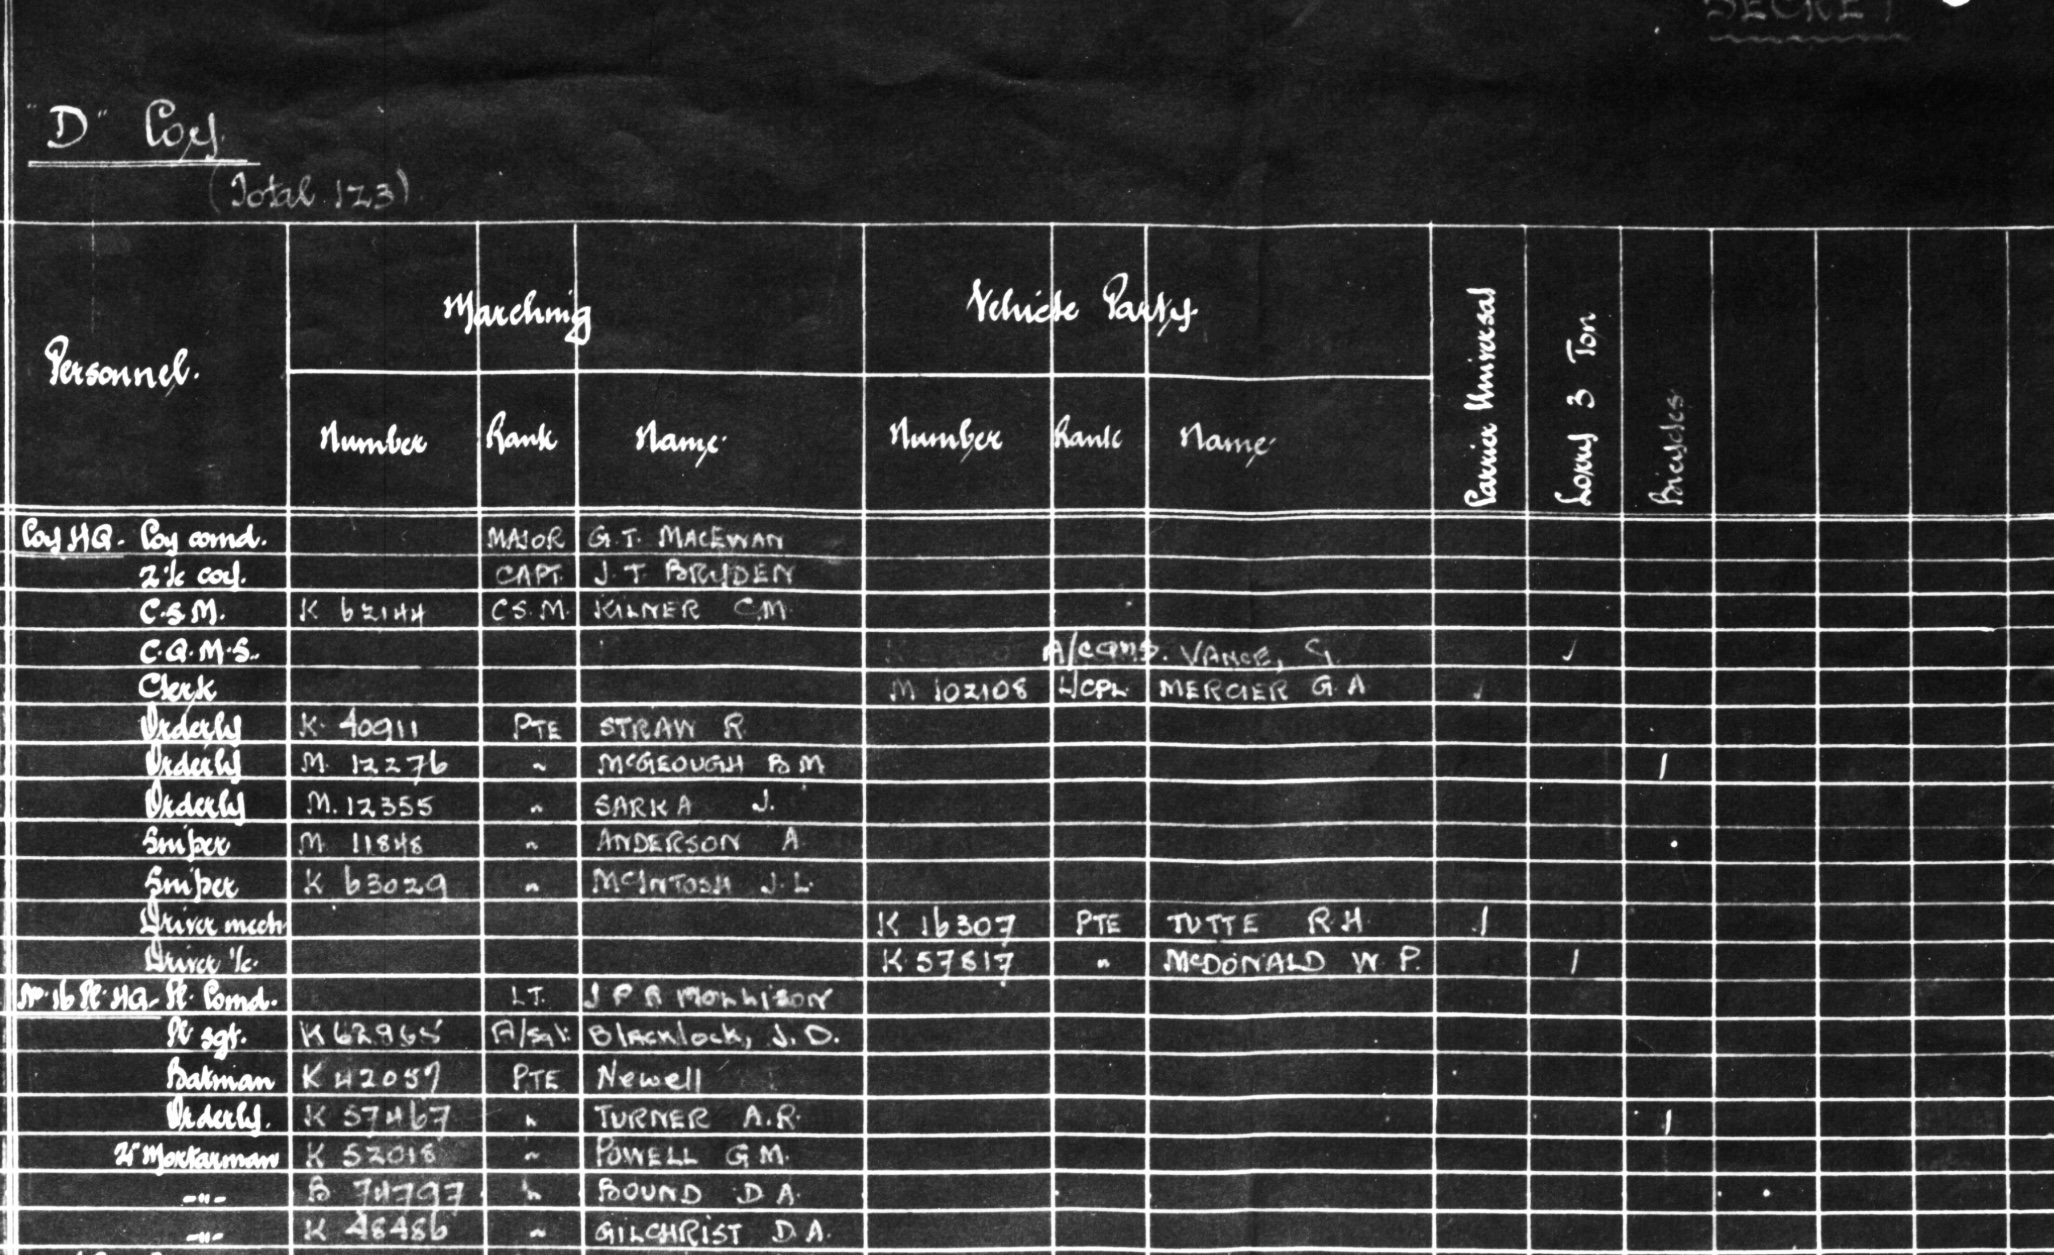 SECRET
"D" Coy.
(Total 123)
Personnel.
Marching
Vehicle Party.
Number Rank Name
Number Rank Name
Carrier Universal
Lorry 3 Ton
Bicycles
Coy HQ. Coy comd. MAJOR G.T. MACEWAN
2 i/c coy. CAPT. J.T. BRYDEN
C.S.M. K 62144 C.S.M. KILNER C.M.
C.Q.M.S. A/CQMS. VANCE, G.
Clerk M 102108 L/CPL MERCIER G A
Orderly K. 40911 PTE STRAW R.
Orderly M. 12276 " McGEOUGH B M
Orderly M. 12355 " SARKA J.
Sniper M 11848 " ANDERSON A
Sniper K 63029 " McINTOSH J. L.
Driver mech K 16307 PTE TUTTE R H 1
Driver i/c. K 57817 " McDONALD W. P. 1
No. 16 Pl. HQ - Pl. Comd. LT. J P R MOLLISON
Pl sgt. K 62965 A/Sgt. Blacklock, J. D.
Batman K 42057 PTE Newell
Orderly. K 57467 " TURNER A.R. 1
2" Mortarman K 52018 " POWELL G M.
-"- B 74797 " BOUND D. A.
-"- K 48486 " GILCHRIST D. A.